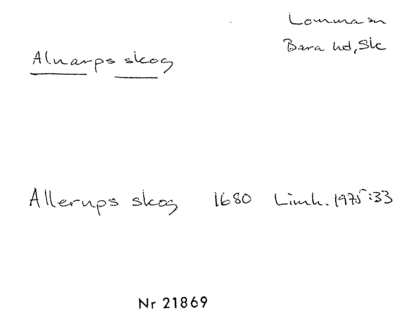 Lomma sn
Bara hd, Sk
Alnarps skog
Allerups skog 1680 Limh. 1975:33
Nr 21869